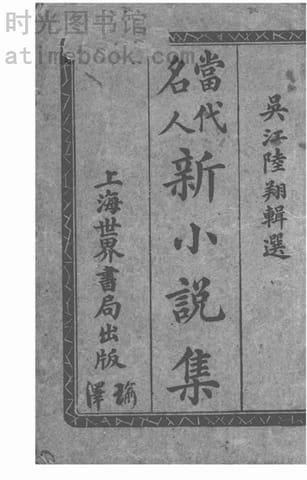 时光图书馆
atimebook.com
吳江陸翔輯選
當代
名人
新小説集
上海世界書局出版
瑜澤